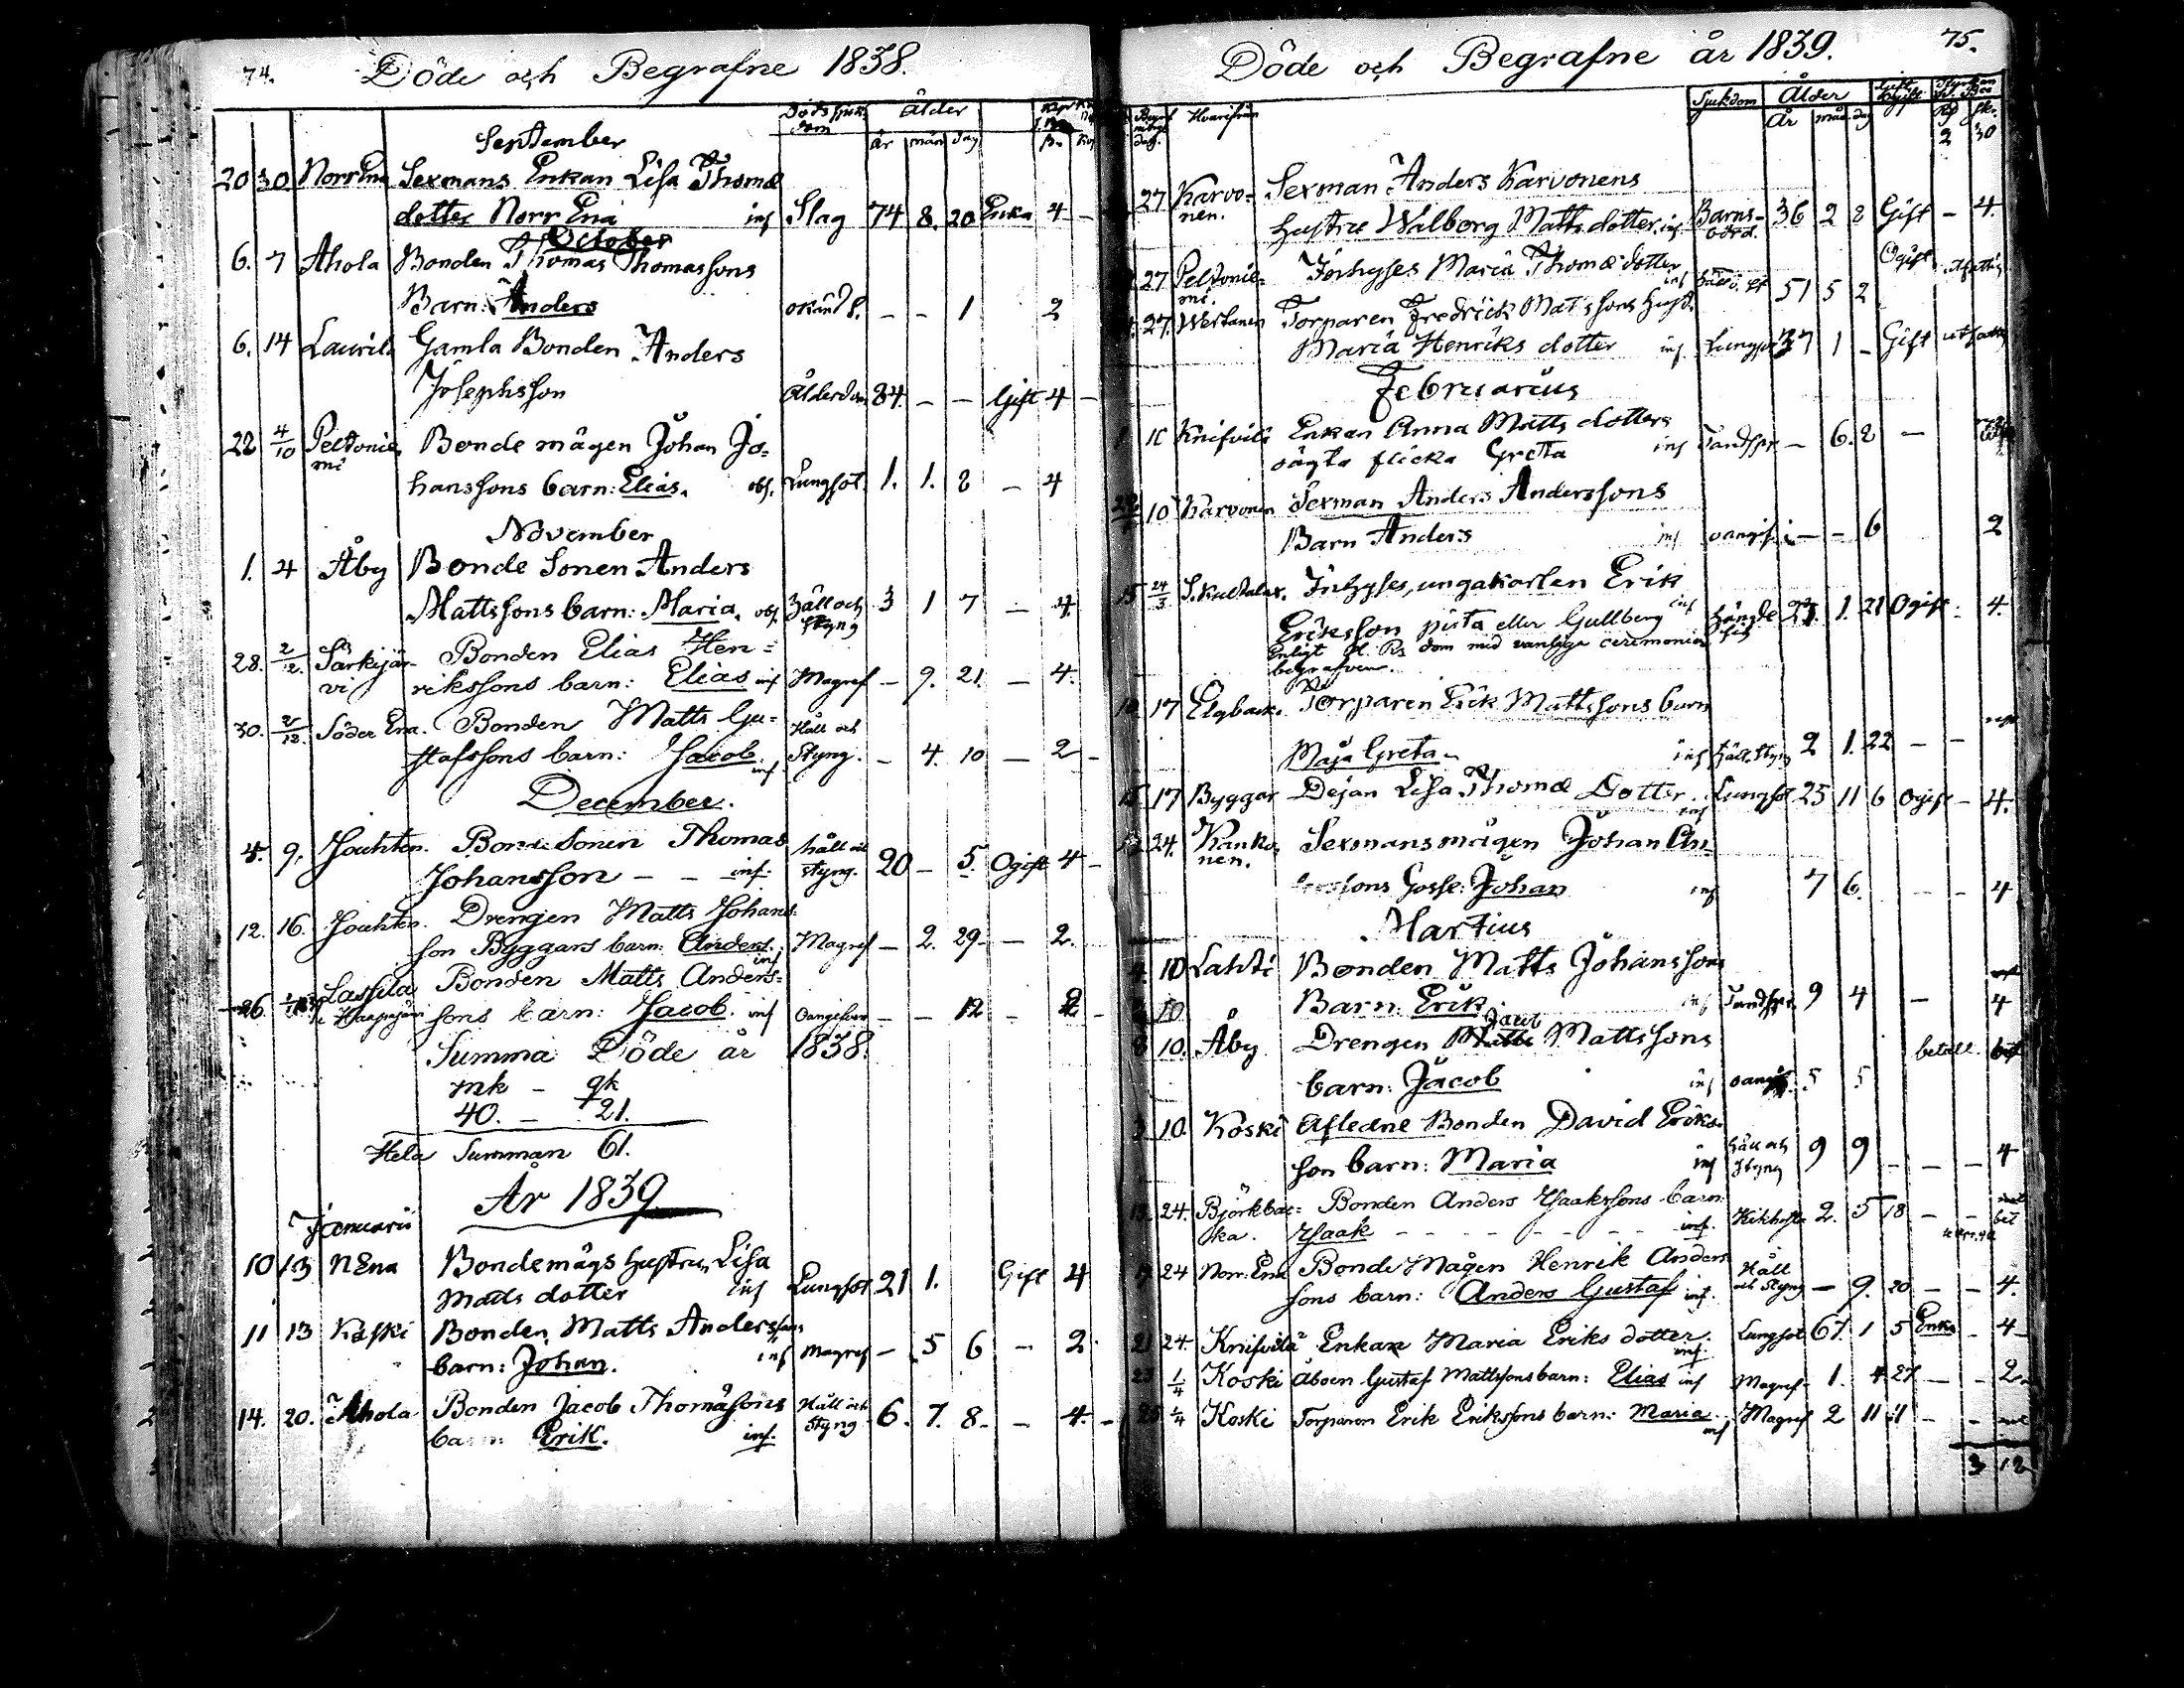 74. Döde och Begrafne 1838.
Dödssjukdom Ålder
år mån dag
September
20 30 Norr Ena Sexmans Enkan Lisa Thomæ
dotter Norr Ena inf Slag 74 8. 20 Enka 4 -
October
6. 7 Ahola Bonden Thomas Thomassons
Barn: Anders okänd s. - - 1 2
6. 14 Laurila Gamla Bonden Anders
Josephsson Ålderdom 84. - - Gift 4 -
22 4/10 Peltonie Bonde mågen Johan Jo=
mi hanssons barn: Elias. obs. Lungsot 1. 1. 8 - 4
November
1. 4 Åby Bonde Sonen Anders
Mattssons barn: Maria. obs. Håll och 3 1 7 - 4.
Styng
28. 2/12. Särkijär- Bonden Elias Hen=
vi rikssons barn: Elias inf Magref - 9. 21. - 4.
30. 2/12. Söder Ena. Bonden Matts Gu= Håll och
stafssons barn: Jacob. inf Styng. - 4. 10 - 2 -
December.
4. 9. Jouhten. Bonde Sonen Thomas håll och
Johansson - - inf. styng. 20 - 5. Ogift 4 -
12. 16. Jouhten. Drengen Matts Johans=
son Byggars barn: Anders. inf Magref - 2. 29 - - 2.
26. Lassila Bonden Matts Anders=
i Haapajärvi sons barn: Jacob. inf Oangifven - - 12 - 2 -
Summa Döde år 1838.
mk - qk
40. - 21.
Hela Summan 61.
År 1839
Januarii
10 13 N Ena Bondemågs hustrun Lisa
Matts dotter inf Lungsot 21 1. Gift 4
11 13 Koski Bonden Matts Anderssons
barn: Johan. inf Magref - 5 6 - 2.
14. 20. Ahola Bonden Jacob Thomassons Håll och
barn: Erik. inf. Styng 6. 7. 8. - 4. -
Döde och Begrafne år 1839. 75.
Hvarifrån Sjukdom Ålder
År mån dag
2 30
27 Karvo= Sexman Anders Karvonens
nen. hustru Walborg Matts dotter. inf Barns- 36 2 8 Gift - 4.
börd.
27 Peltonie- Inhyses Maria Thomæ dotter Ogift utfattig
mi. inf 51 5 2
27. Wertanen Torparen Fredrick Matssons hust.
Maria Henriks dotter inf Lungsot 37 1 - Gift utfattig
Februarius
10 Knifvilä Enkan Anna Matts dotters
oägta flicka Greta inf Tandspr - 6. 2 -
10 Karvonen Sexman Anders Anderssons
Barn Anders inf oangif. - - 6 2
15 24/3 S. Kuttalax. Inhyses, ungakarlen Erik
Eriksson pista eller Gullberg inf hängde 27. 1. 21 Ogift - 4.
sig
Enligt dom med vanliga ceremonier
begrafven.
17 Elgback. Torparen Erik Mattssons barn
Maja Greta inf håll. Styng 2 1. 22 - -
15 17 Byggar Dejan Lisa Thomæ Dotter. inf Lungsot 25 11 6 Ogift - 4.
24. Kanko= Sexmansmågen Johan An
nen. sons Gosse: Johan inf 7 6. - - 4
Martius
10 Lahti Bonden Matts Johanssons
10 Barn: Erik inf Tandspr. 9 4 - 4
8 10. Åby Drengen Jacob Mattssons betalt
barn: Jacob inf oangif. 5 5
10. Koski Afledne Bonden David Eriks=
son barn: Maria inf håll och 9 9 - - - 4
Styng
24. Björkbac= Bonden Anders Isaakssons barn
ka. Isaak - - - - - - inf. Kikhosta 2. 5 18 - -
24 Norr Ena Bonde Mågen Henrik Anders Håll
sons barn: Anders Gustaf inf. och Styng - 9. 20 - - 4.
21 24. Knifvilä Enkan Maria Eriks dotter. inf. Lungsot 67. 1 5 Enka - 4
25 1/4 Koski Åboen Gustaf Mattssons barn: Elias inf Magref 1. 4. 27 - - 2.
1/4 Koski Torparen Erik Erikssons barn: Maria. inf Magref 2 11 11 - -
3 12